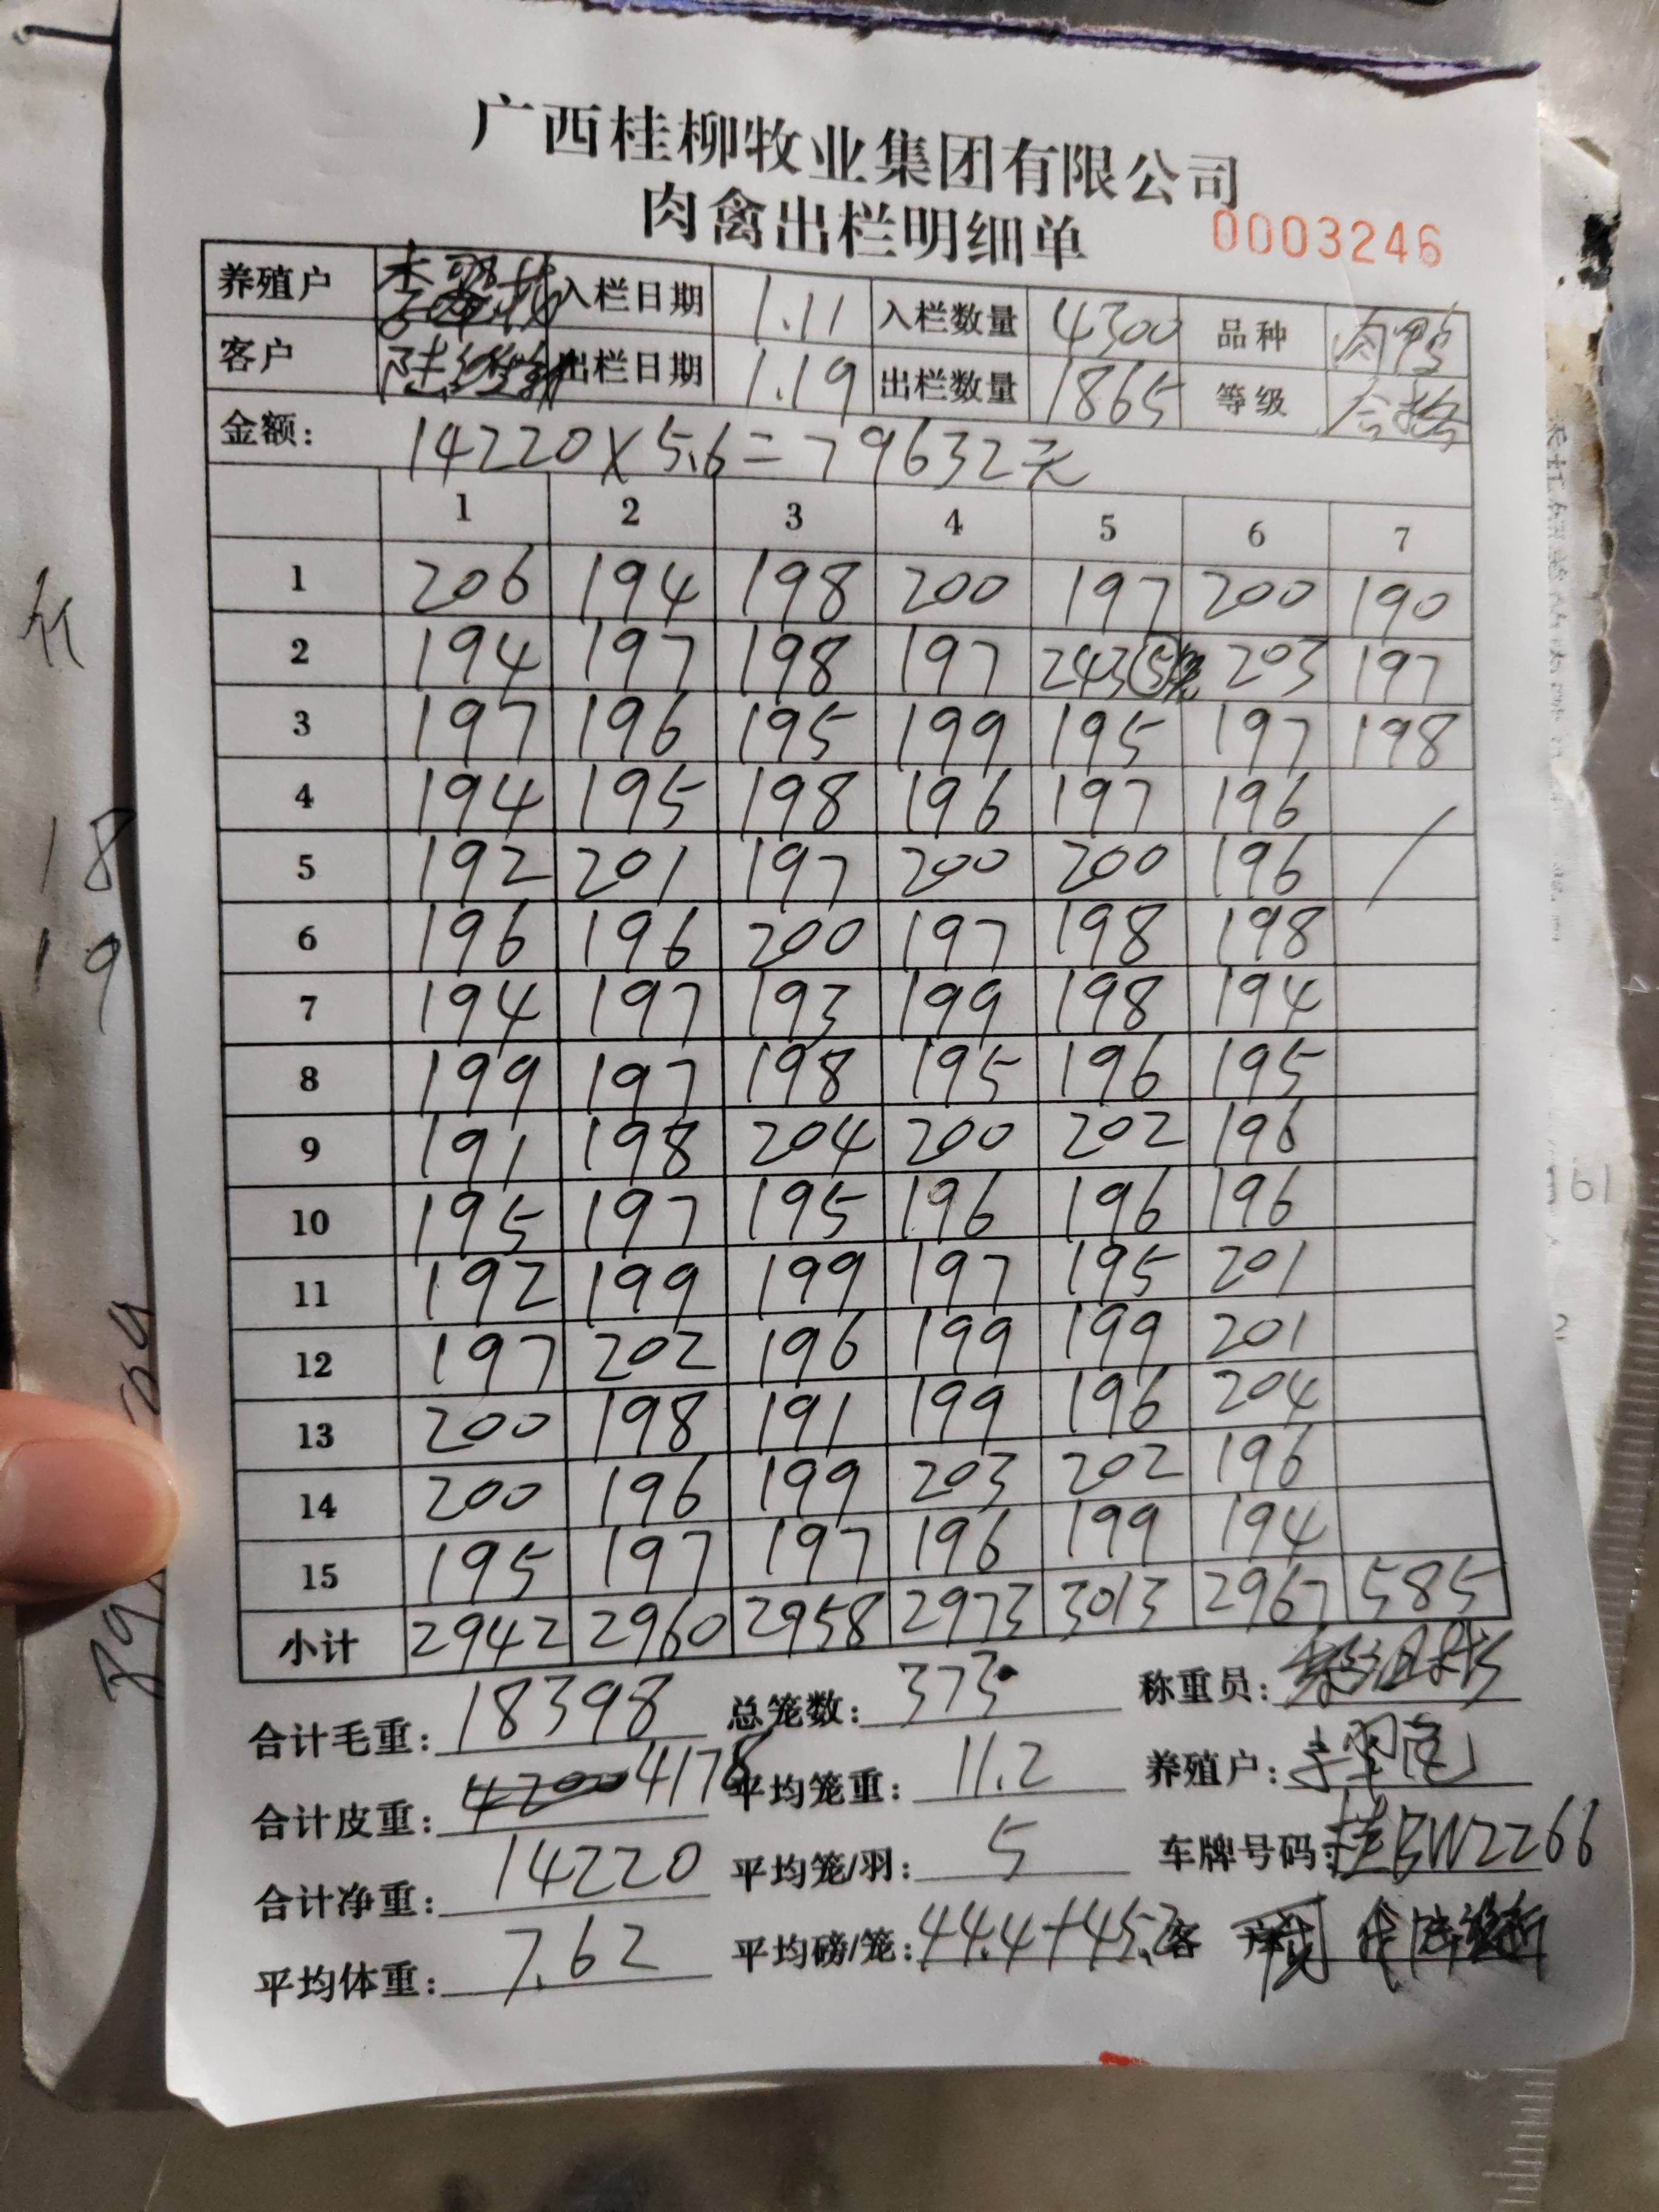 广西桂柳牧业集团有限公司
肉禽出栏明细单 0003246
养殖户 入栏日期 1.11 入栏数量 4300 品种 肉鸭
客户 出栏日期 1.19 出栏数量 1865 等级 合格
金额: 14220×5.6=79632元
1 2 3 4 5 6 7
1 206 194 198 200 197 200 190
2 194 197 198 197 243 203 197
3 197 196 195 199 195 197 198
4 194 195 198 196 197 196
5 192 201 197 200 200 196
6 196 196 200 197 198 198
7 194 197 193 199 198 194
8 199 197 198 195 196 195
9 191 198 204 200 202 196
10 195 197 195 196 196 196
11 192 199 199 197 195 201
12 197 202 196 199 199 201
13 200 198 191 199 196 204
14 200 196 199 203 202 196
15 195 197 197 196 199 194
小计 2942 2960 2958 2973 3013 2967 585
合计毛重: 18398 总笼数: 373 称重员:
合计皮重: 4200 4178 平均笼重: 11.2 养殖户:
合计净重: 14220 平均笼/羽: 5 车牌号码: 桂BW2266
平均体重: 7.62 平均磅/笼: 44.4+45.2 客
18
19